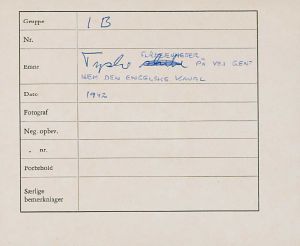 Gruppe I B
Nr.
FLÅDEENHEDER
Emne Tyske på vej gen
nem den engelske kanal
Dato 1942
Fotograf
Neg. opbev.
„ nr.
Forbehold
Særlige
bemærkninger